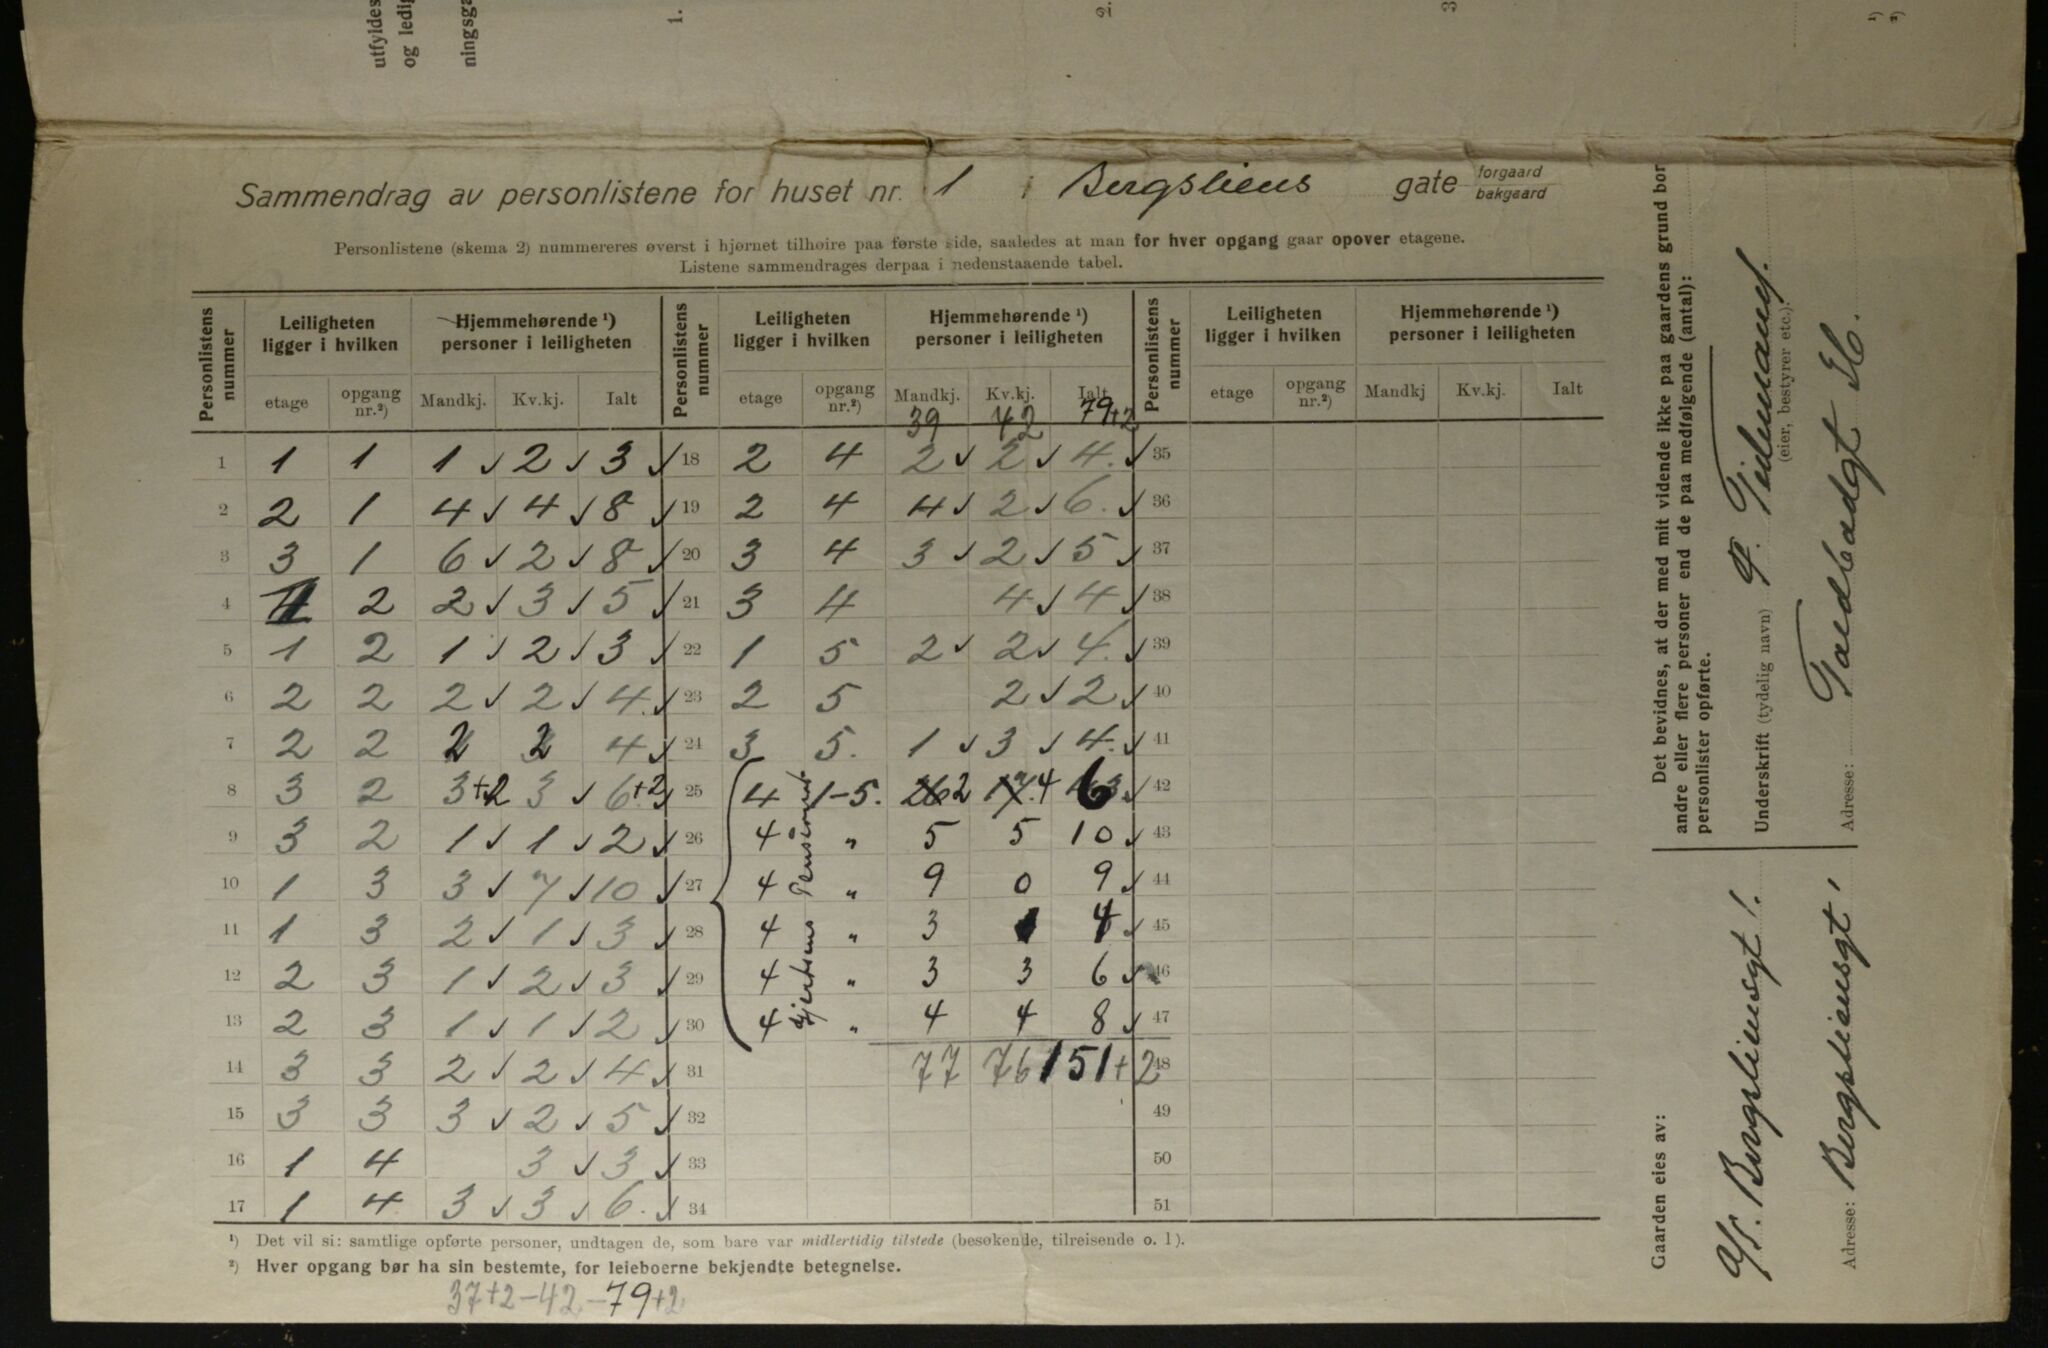 utfyldes
og ledig
ningsga
1.
2.
3
¹)
²)
Sammendrag av personlistene for huset nr. 1 i Bergsliens gate forgaard bakgaard
Personlistene (skema 2) nummereres øverst i hjørnet tilhøire paa første side, saaledes at man for hver opgang gaar opover etagene.
Listene sammendrages derpaa i nedenstaaende tabel.
Personlistens nummer Leiligheten ligger i hvilken Hjemmehørende ¹) personer i leiligheten Personlistens nummer Leiligheten ligger i hvilken Hjemmehørende ¹) personer i leiligheten Personlistens nummer Leiligheten ligger i hvilken Hjemmehørende ¹) personer i leiligheten
etage opgang nr.²) Mandkj. Kv.kj. Ialt etage opgang nr.²) Mandkj. Kv.kj. Ialt etage opgang nr.²) Mandkj Kv.kj. Ialt
39 42 79+2
1 1 1 1 2 3 18 2 4 2 2 4. 35
2 2 1 4 4 8 19 2 4 4 2 6. 36
3 3 1 6 2 8 20 3 4 3 2 5 37
4 1 2 2 3 5 21 3 4 4 4 38
5 1 2 1 2 3 22 1 5 2 2 4. 39
6 2 2 2 2 4. 23 2 5 2 2 40
7 2 2 2 2 4 24 3 5. 1 3 4. 41
8 3 2 3+2 3 6+2 25 4 1-5. 26 2 17. 4 6 42
9 3 2 1 1 2 26 4 " 5 5 10 43
10 1 3 3 7 10 27 4 " 9 0 9 44
11 1 3 2 1 3 28 4 " 3 1 4 45
12 2 3 1 2 3 29 4 " 3 3 6 46
13 2 3 1 1 2 30 4 " 4 4 8 47
14 3 3 2 2 4 31 77 76 151+2 48
15 3 3 3 2 5 32 49
16 1 4 3 3 33 50
17 1 4 3 3 6. 34 51
¹) Det vil si: samtlige opførte personer, undtagen de, som bare var midlertidig tilstede (besøkende, tilreisende o. l).
²) Hver opgang bør ha sin bestemte, for leieboerne bekjendte betegnelse.
37+2-42-79+2
Det bevidnes, at der med mit vidende ikke paa gaardens grund bor
andre eller flere personer end de paa medfølgende (antal):
personlister opførte.
Underskrift (tydelig navn) P. Tidemand.
(eier, bestyrer etc.)
Adresse:
Gaarden eies av:
A/S. Bergsliensgt 1.
Adresse: Bergsliensgt 1